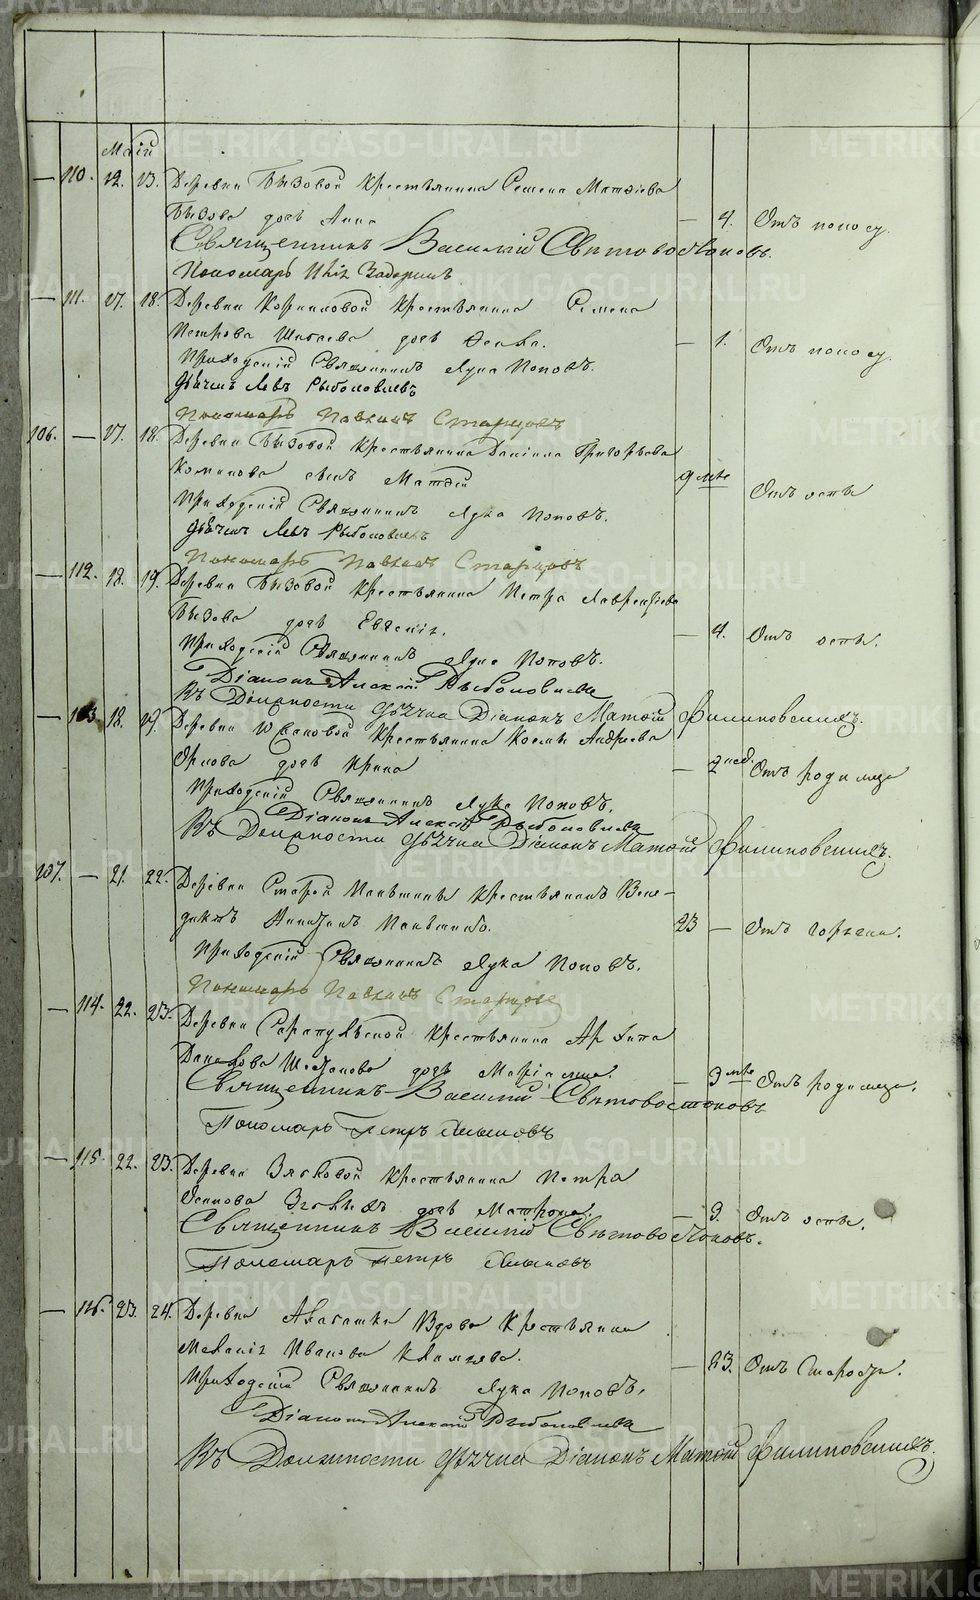 Май
— 110. 12. 13. Деревни Бызовой крестьянина Семена Матфіева
Бызова дочь Анна — 4. Отъ поносу.
Священникъ Василій Святовостоковъ.
Пономарь Задоринъ
— 111. 17. 18. Деревни крестьянина Семена
Петрова дочь — 1. Отъ поносу.
Приходскій Священникъ Лука Поповъ.
Дьячекъ Левъ Рыболовлевъ
Пономарь Старцовъ
106. — 17. 18. Деревни Бызовой крестьянина Даніила Григорьева
сынъ Матфей 9 мѣс Отъ оспы
Приходскій Священникъ Лука Поповъ.
Дьячекъ Левъ Рыболовлевъ
Пономарь Старцовъ
— 112. 18. 19. Деревни Бызовой крестьянина Петра Лаврентіева
Бызова дочь Евгенія. — 4. Отъ оспы.
Приходскій Священникъ Лука Поповъ.
Діаконъ Алексій Рыболовлевъ
Въ Должности Дьячка Діаконъ Матѳій Филиповскихъ.
— 113. 18. 19. Деревни крестьянина Космы Андреева
Орлова дочь Ирина — 2 нед. Отъ родимца
Приходскій Священникъ Лука Поповъ.
Діаконъ Алексій Рыболовлевъ
Въ Должности Дьячка Діаконъ Матѳій Филиповскихъ.
107. — 21. 22. Деревни Старой крестьянинъ Вене-
диктъ 23 — Отъ горячки.
Приходскій Священникъ Лука Поповъ.
Пономарь Старцовъ
— 114. 22. 23. Деревни Сарапульской крестьянина Архипа
дочь — 3 мѣс Отъ родимца.
Священникъ Василій Святовостоковъ
Пономарь Петръ Хлыновъ
— 115. 22. 23. Деревни крестьянина Петра
Осипова дочь Матрона. — 3. Отъ оспы.
Священникъ Василій Святовостоковъ.
Пономарь Петръ Хлыновъ
— 116. 23. 24. Деревни вдова крестьянка
Меланія Иванова — 83. Отъ старости.
Приходскій Священникъ Лука Поповъ.
Діаконъ Алексій Рыболовлевъ
Въ Должности Дьячка Діаконъ Матѳій Филиповскихъ.